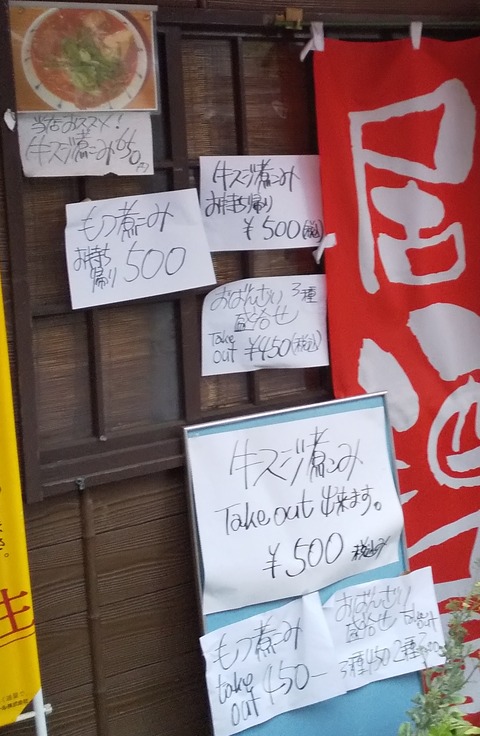 当店おススメ!
牛スジ煮こみ650円
牛スジ煮こみ
お持ち帰り
¥500(税込)
もつ煮こみ
お持ち帰り 500
おばんざい 3種
盛合せ
Take out ¥450(税込)
牛スジ煮こみ
Take out 出来ます。
¥500 税込み
もつ煮こみ
take out 450-
おばんざい
盛合せ take out
3種450 2種300
居酒
生